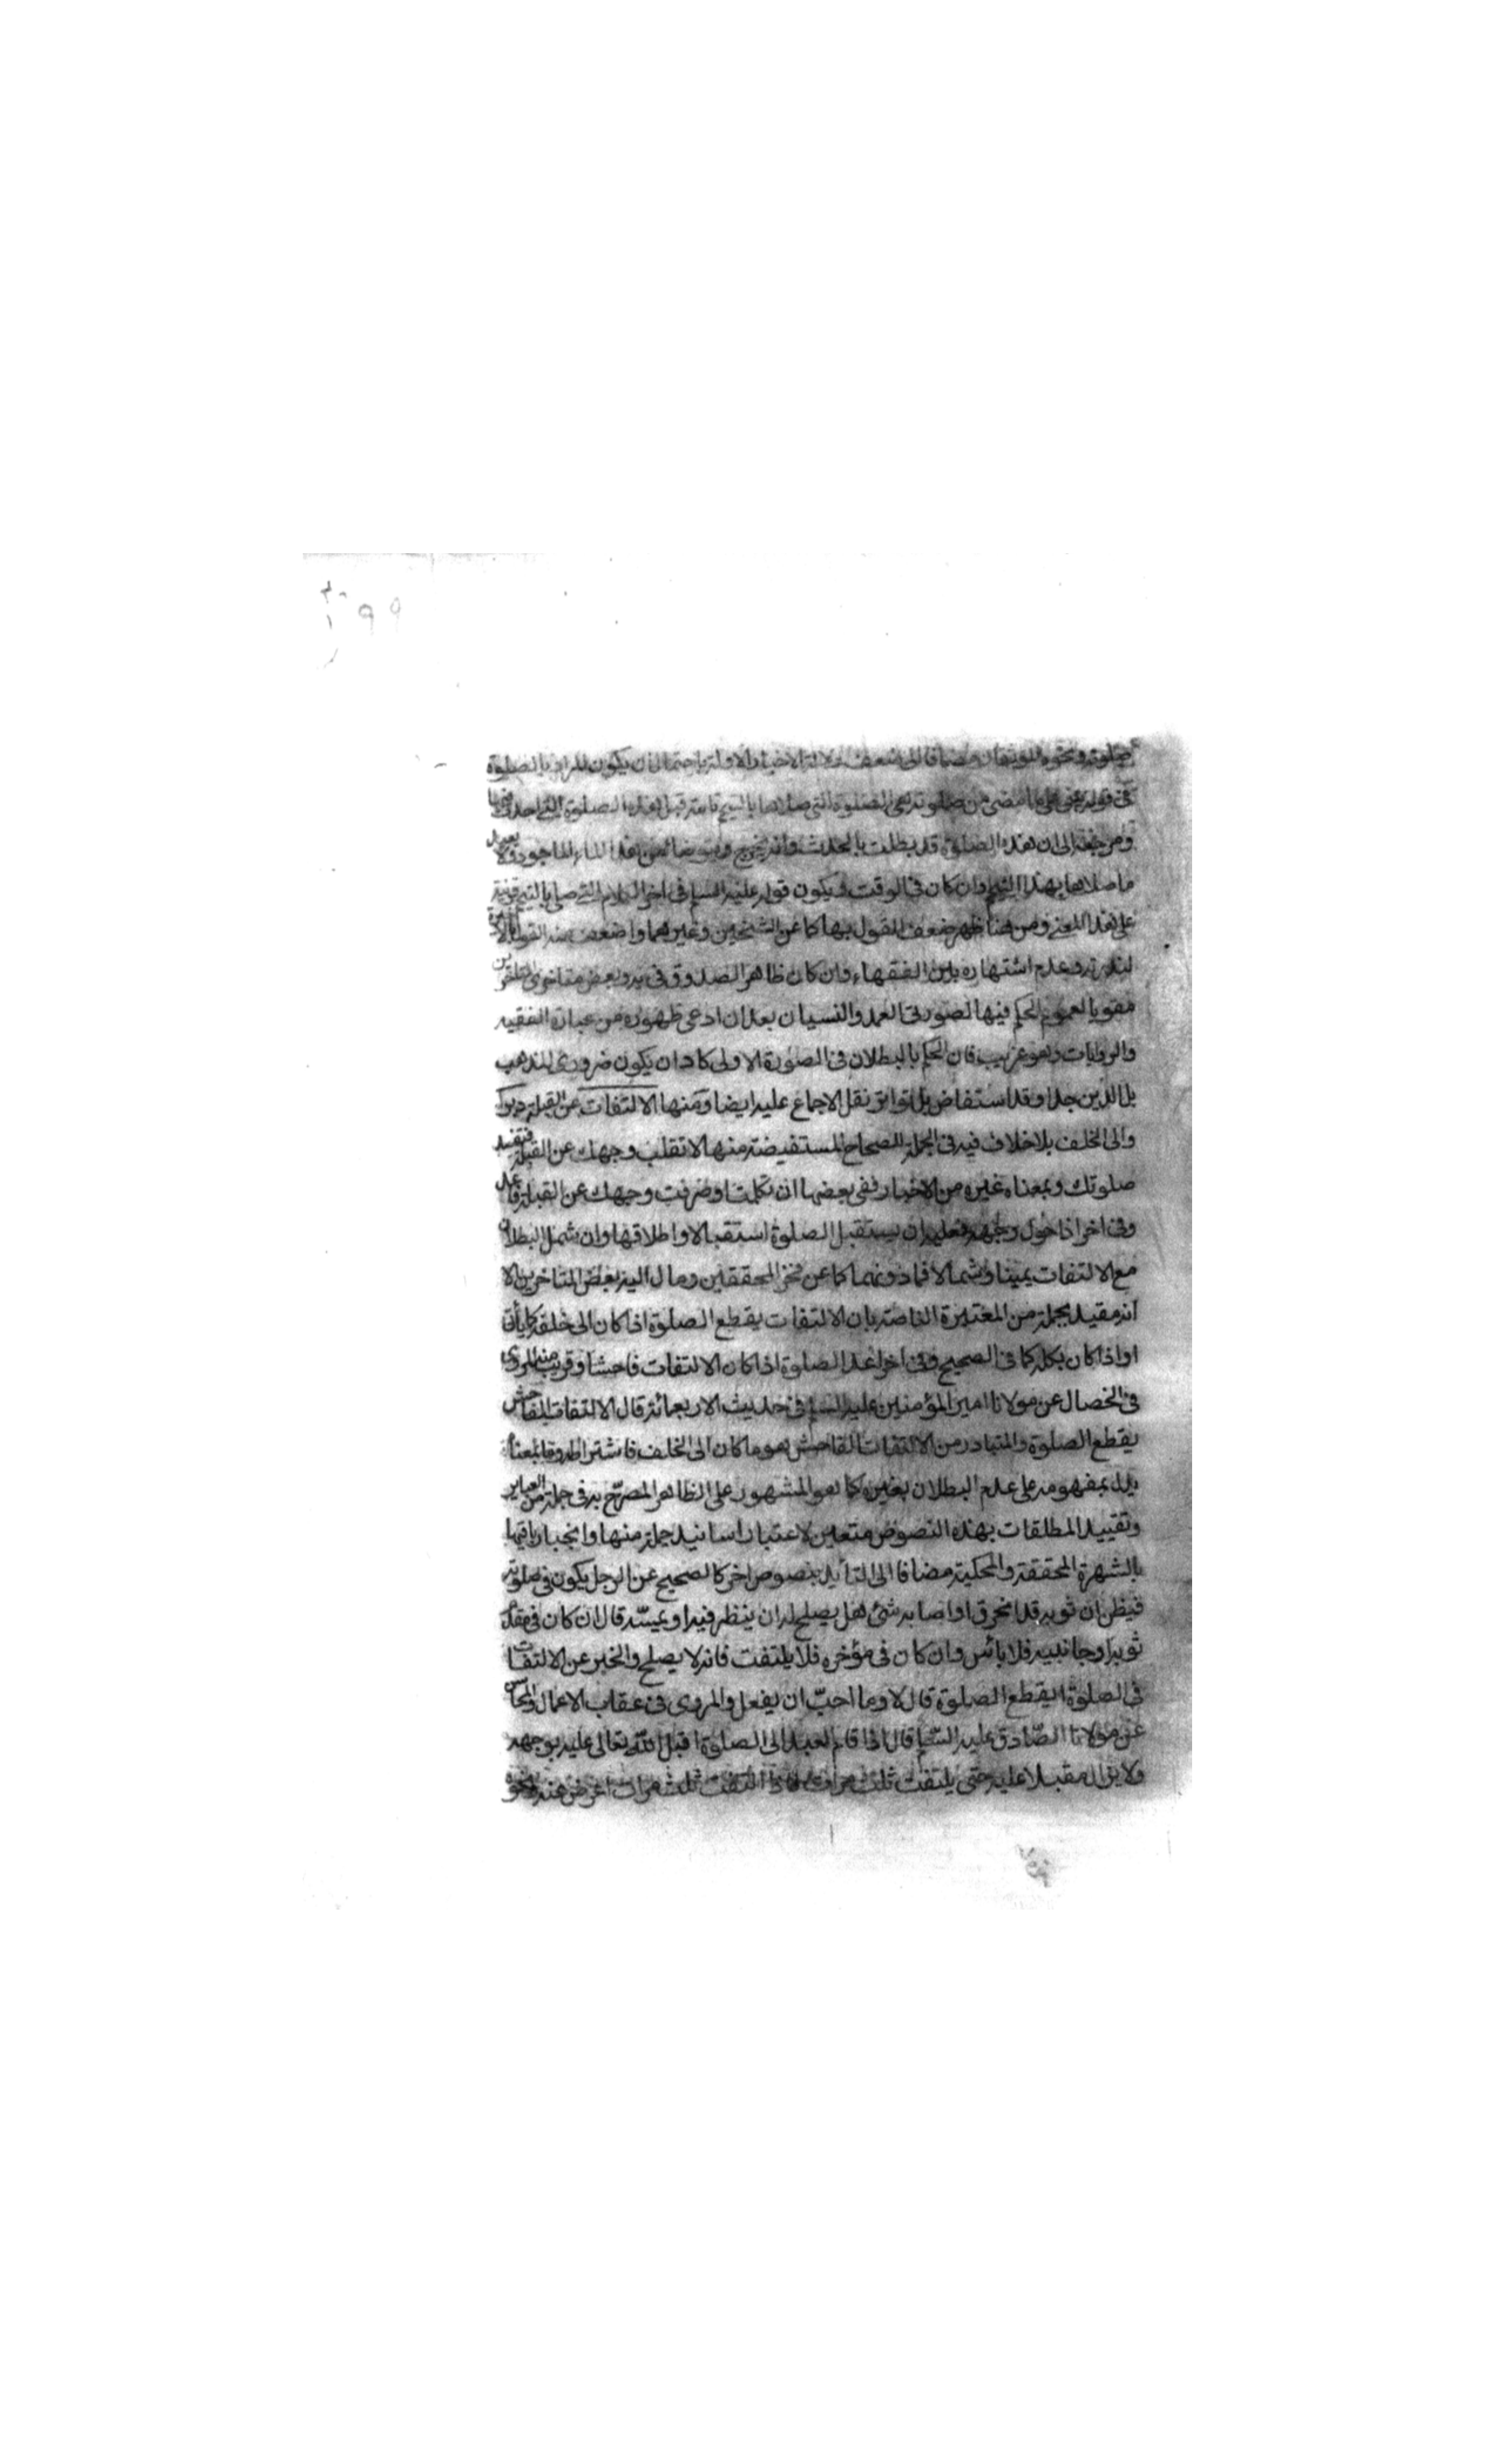 صلوته ونحوه الموثقان مضافا الى ضعف دلالة الاخبار الاولة باحتمال ان يكون المراد بالصلوة
فى قوله بنى على ما مضى من صلوته هى الصلوة التى صلاها بالتيمم تامة قبل هذه الصلوة التى احدث فيها
ومرجعه الى ان هذه الصلوة قد بطلت بالحدث وانه يخرج ويتوضا من هذا الماء الماجود ولا يعيد
ما صلاها بهذا التيمم وان كان فى الوقت ويكون قوله عليه السلم فى اخر الكلام التى صلى بالتيمم قرينة
على هذا المعنى ومن هنا ظهر ضعف القول بها كما عن الشيخين وغيرهما واضعف منه القول بالاخيرة
لندرته وعدم اشتهاره بين الفقهاء وان كان ظاهر الصدوق فى يه وبعض متاخرى المتاخرين
مقويا لعموم الحكم فيها لصورتى العمد والنسيان بعد ان ادعى ظهوره من عبارة الفقيه
والروايات وهو غريب فان الحكم بالبطلان فى الصورة الاولى كاد ان يكون ضرورى المذهب
بل الدين جدا وقد استفاض بل تواتر نقل الاجماع عليه ايضا ومنها الالتفات عن القبلة دبرا
والى الخلف بلا خلاف فيه فى الجملة للصحاح المستفيضة منها لا تقلب وجهك عن القبلة فتفسد
صلوتك وبمعناه غيره من الاخبار ففى بعضها ان تكلمت او صرفت وجهك عن القبلة فاعد
وفى اخر اذا حول وجهه فعليه ان يستقبل الصلوة استقبالا واطلاقها وان شمل البطلان
مع الالتفات يمينا وشمالا فما دونهما كما عن فخر المحققين ومال اليه بعض المتاخرين الا
انه مقيد بجملة من المعتبرة الناصة بان الالتفات يقطع الصلوة اذا كان الى خلفه كما يأتى
او اذا كان بكله كما فى الصحيح وفى اخر اعد الصلوة اذا كان الالتفات فاحشا وقريب منه المروى
فى الخصال عن مولانا امير المؤمنين عليه السلم فى حديث الاربعمائة قال الالتفات الفاحش
يقطع الصلوة والمتبادر من الالتفات الفاحش هو ما كان الى الخلف فاشتراطه وما بمعناه
يدل بمفهومه على عدم البطلان بغيره كما هو المشهور على الظاهر المصرّح به فى جملة من العباير
وتقييد المطلقات بهذه النصوص متعين لاعتبار اسانيد جملة منها وانجبار باقيها
بالشهرة المحققة والمحكية مضافا الى التأيل بنصوص اخر كالصحيح عن الرجل يكون فى صلوته
فيظن ان ثوبه قد انخرق او اصابه شئ هل يصلح له ان ينظر فيه او يمسّه قال ان كان فى مقدم
ثوبه او جانبيه فلا بائس وان كان فى مؤخره فلا يلتفت فانه لا يصلح والخبر عن الالتفات
فى الصلوة ايقطع الصلوة قال لا وما احبّ ان يفعل والمروى فى عقاب الاعمال والمحاسن
عن مولانا الصّادق عليه السّلم قال اذا قام العبد الى الصلوة اقبل اللّه تعالى عليه بوجهه
ولا يزال مقبلا عليه حتى يلتفت ثلث مرات فاذا التفت ثلث مرات اعرض عنه ونحوه